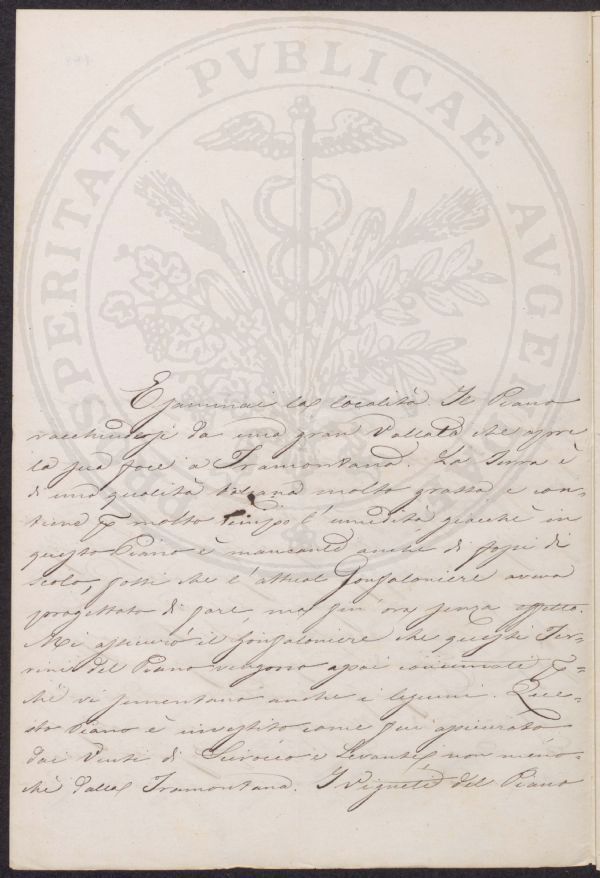 PROSPERITATI PVBLICAE AVGENDAE
Esaminai la località Il Piano
racchiudesi da una gran Vallata che apre
la sua foce a Tramontana. La Terra è
di una qualità molto grassa e con-
tiene p molto tempo l'umidità giacchè in
questo Piano è mancante anche di fossi di
scolo, fossi che l'attual Gonfaloniere aveva
progettato di fare, ma fin'ora senza effetto.
Mi assicurò il Gonfaloniere che questi Ter-
reni del Piano vengono assai concimate p-
chè vi sementano anche i legumi.
sto Piano è investito come fui assicurato
dai Venti di Scirocco e Levante non meno-
chè dalla Tramontana. I vigneti del Piano